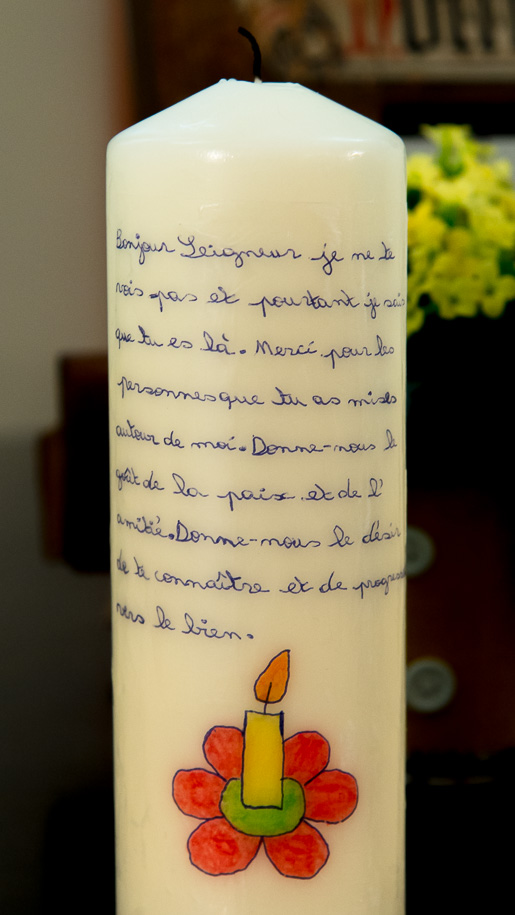 Bonjour Seigneur je ne te
vois pas et pourtant je sais
que tu es là. Merci pour les
personnes que tu as mises
autour de moi. Donne-nous le
goût de la paix et de l'
amitié. Donne-nous le désir
de te connaître et de progresser
vers le bien.